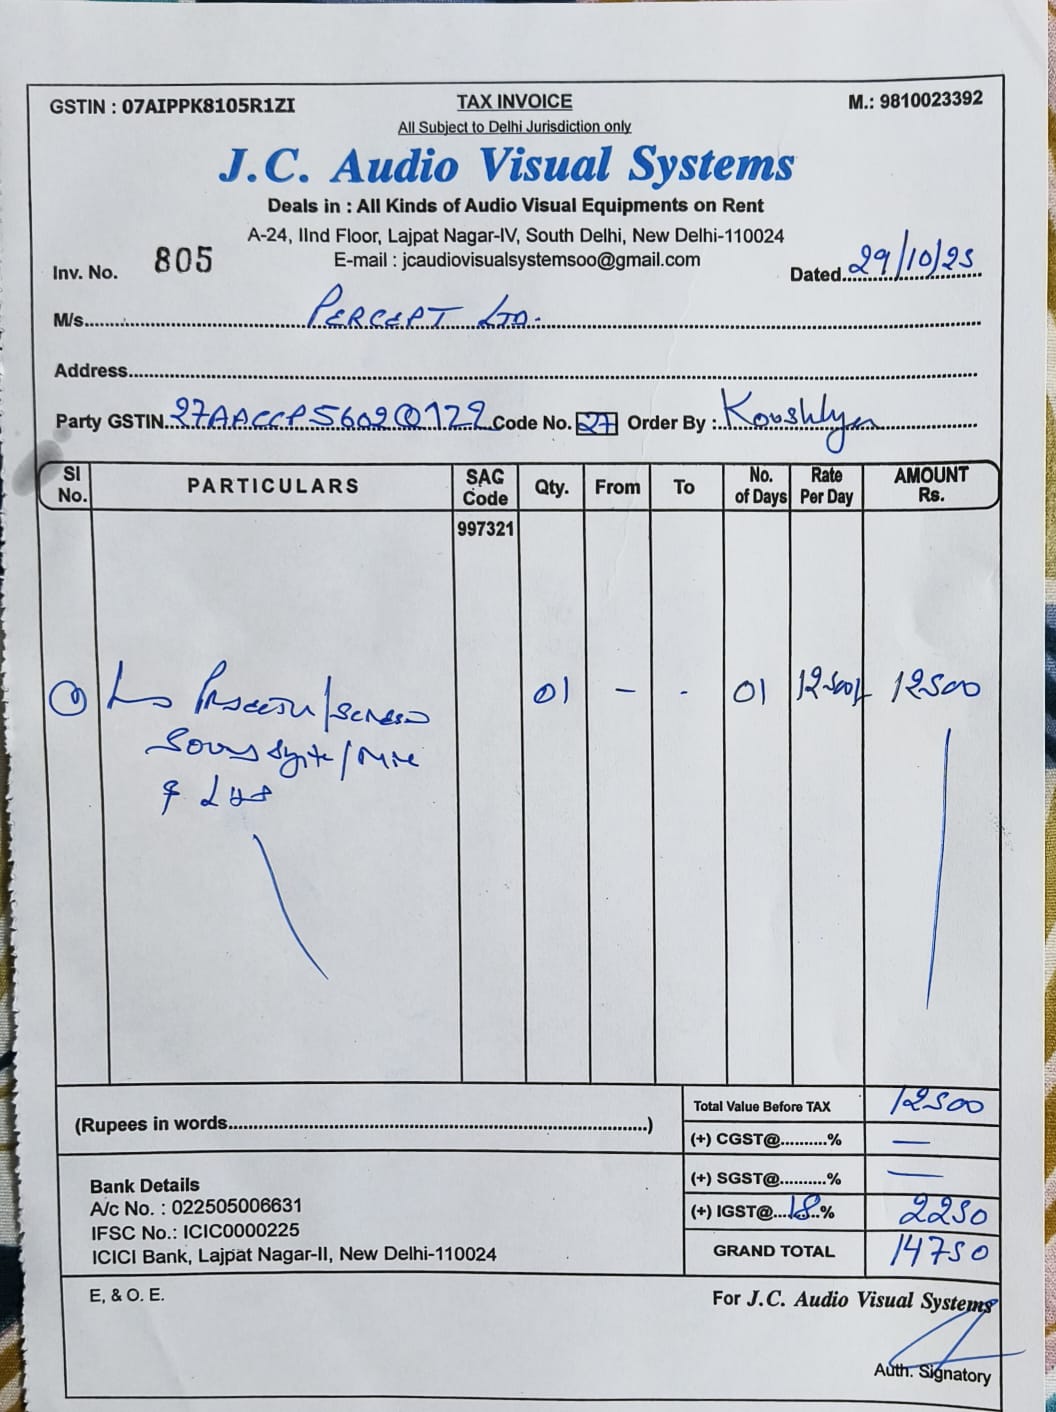 GSTIN : 07AIPPK8105R1ZI TAX INVOICE M.: 9810023392
All Subject to Delhi Jurisdiction only
J.C. Audio Visual Systems
Deals in : All Kinds of Audio Visual Equipments on Rent
A-24, IInd Floor, Lajpat Nagar-IV, South Delhi, New Delhi-110024
E-mail : jcaudiovisualsystemsoo@gmail.com
Inv. No. 805 Dated 29/10/25
M/s PERCEPT LTD.
Address
Party GSTIN Code No. 27 Order By :
Sl No. PARTICULARS SAG Code Qty. From To No. of Days Rate Per Day AMOUNT Rs.
997321
01 – - 01 12500/- 12500
(Rupees in words )
Total Value Before TAX 12500
(+) CGST@ % —
(+) SGST@ % —
(+) IGST@ 18 % 2250
GRAND TOTAL 14750
Bank Details
A/c No. : 022505006631
IFSC No.: ICIC0000225
ICICI Bank, Lajpat Nagar-II, New Delhi-110024
E, & O. E.
For J.C. Audio Visual Systems
Auth. Signatory